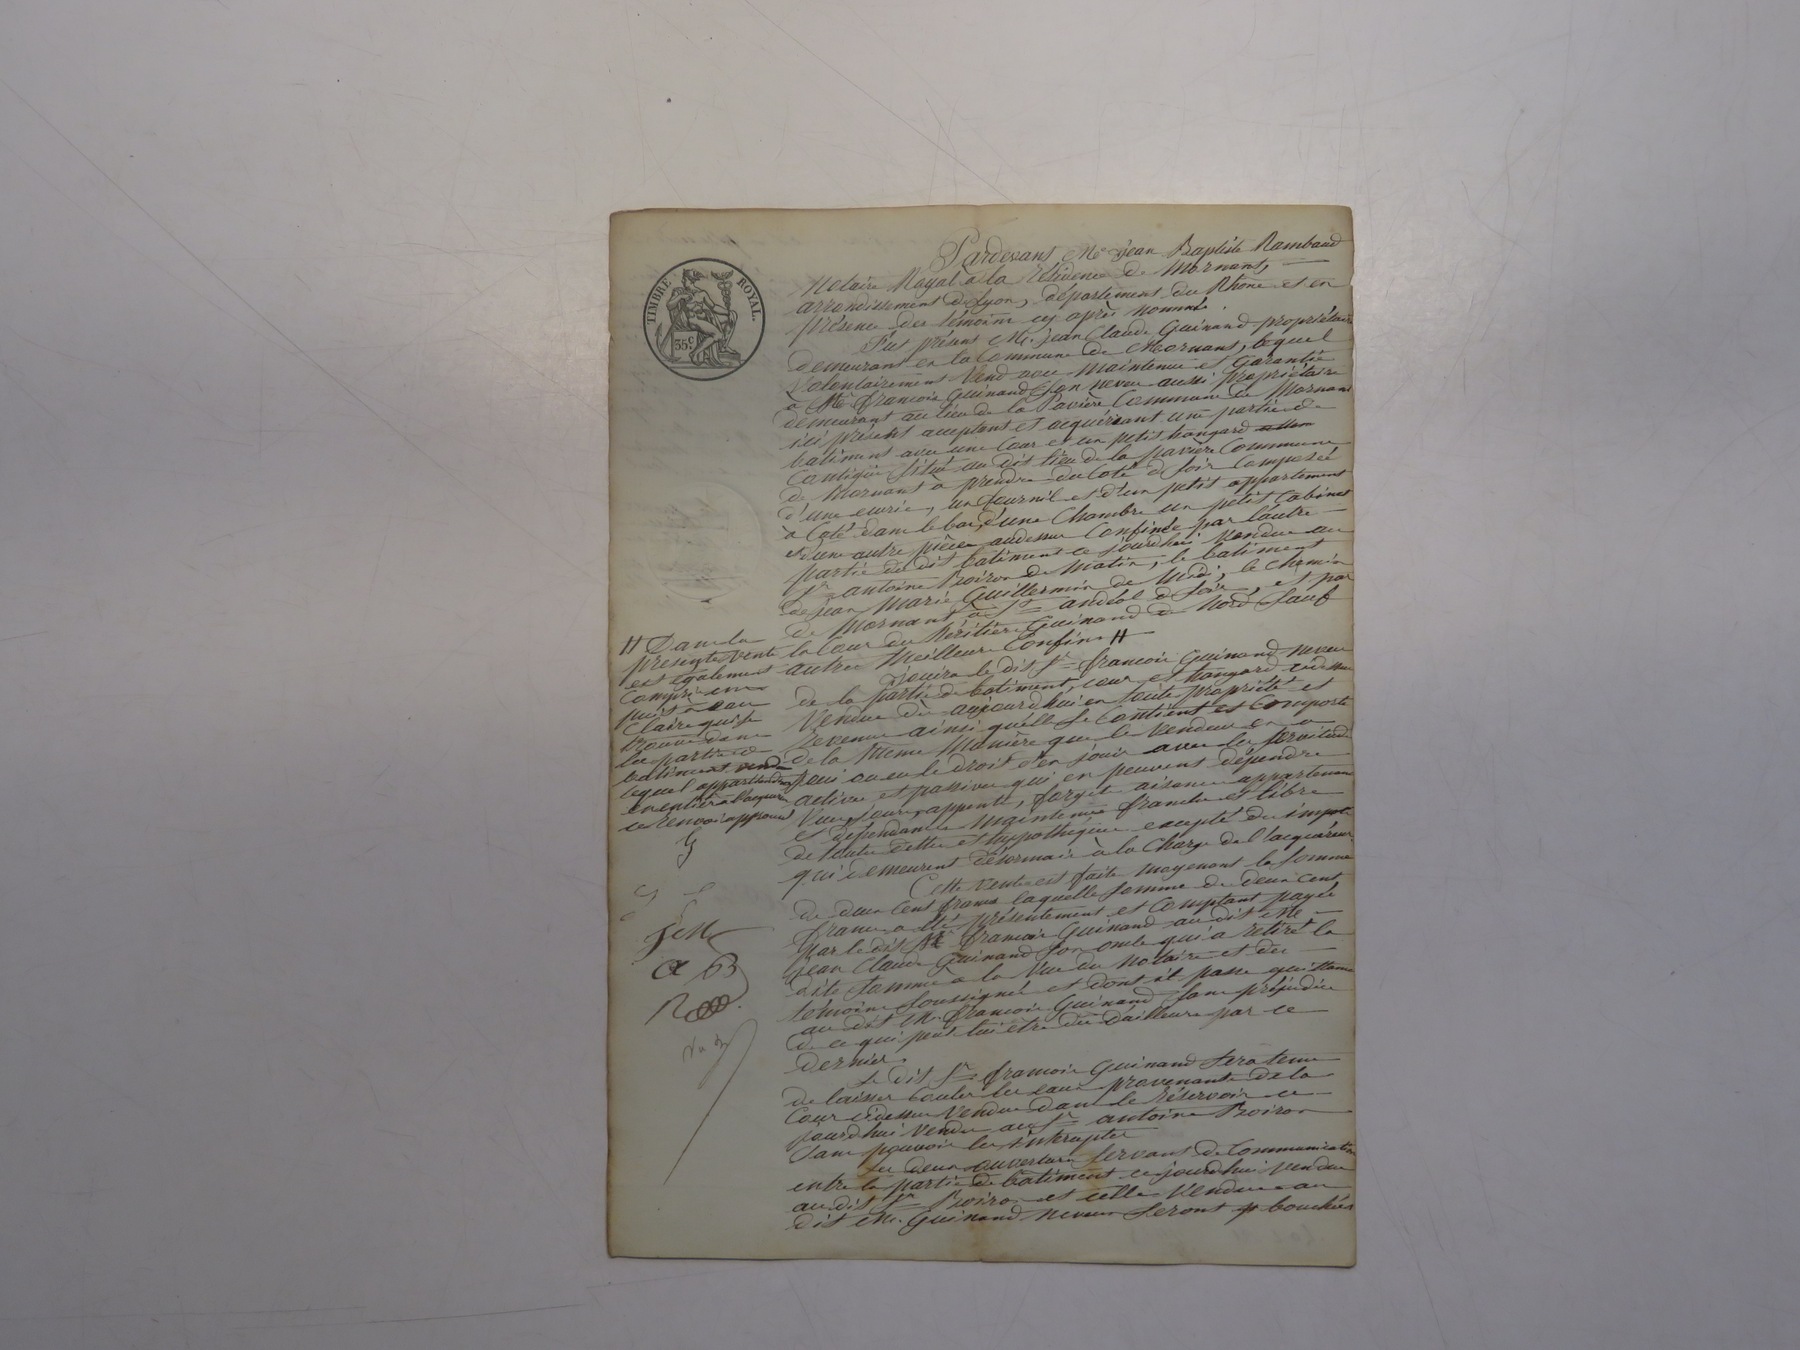 TIMBRE ROYAL.
35c
Pardevant Me Jean Baptiste Rambaud
Notaire Royal à la résidence de Mornant,
arrondissement de Lyon, département du Rhône et en
présence des témoins cy après nommé.
Fut présent M. jean Claude Guinand propriétaire
demeurant en la Commune de Mornant, lequel
volontairement vend avec maintenue et garantie
à Me françois Guinand son neveu aussi propriétaire
demeurant au lieu de la Pavière Commune de Mornant
ici présent acceptant et acquérant une partie de
batiment avec une Cour et un petit hangard
Contigüe situé au dit lieu de la pavière Commune
de Mornant à prendre du Coté de soir Composée
d'une ecurie, un fournil et d'un petit appartement
à Coté dans le bas, d'une Chambre un petit Cabinet
et d'une autre pièce audessus Confinée par l'autre
partie du dit batiment ce jourdhui vendue au
Sr antoine Boiron de matin, le batiment
de jean Marie Guillermin de midi, le chemin
de Mornant à St andéol de soir, et par
la Cour des héritiers Guinand de Nord sauf
autres Meilleurs Confins H
Jouira le dit Sr françois Guinand neveu
de la partie de batiment, cour et hangard cidessus
Vendue dès aujourdhui en toute propriété et
revenus ainsi qu'elle se Contient et Comporte
de la Meme Manière que le vendeur en a
joui ou eu le droit d'en jouir avec les servitudes
actives et passives qui en peuvent dépendre
Vues, jours, appents, forget aisances appartenances
et dépendances Maintenue franche et libre
de toutes dettes et hypothèques excepté des impots
qui demeurent désormais à la Charge de l'acquéreur
Cette vente est faite moyenant la somme
de deux Cent francs laquelle somme de deux Cent
francs a été présentement et Comptant payée
par le dit Me françois Guinand au dit Me
jean Claude Guinand son oncle qui a retiré la
dite somme à la Vue du Notaire et des
témoins soussignés et dont il passe quittance
au dit M. françois Guinand sans préjudice
de ce qui peut lui être dû dailleurs par ce
dernier.
Le dit Sr françois Guinand sera tenu
de laisser Couler les eaux provenant de la
Cour cidessus Vendue dans le réservoir ce
jourdhui vendu au Sr antoine Boiron
sans pouvoir les intercepter
Les deux ouvertures servant de Communication
entre la partie de batiment ce jourdhui vendue
au dit Sr Boiron et celle Vendue au
dit M. Guinand neveu seront bouchées
H Dans la
présente vente
est également
Compris un
puits à eau
Claire qui se
trouve dans
la partie de
batiment vendue
lequel appartiendra
en entier à l'acquéreur
ce renvoi approuvé
G
a B